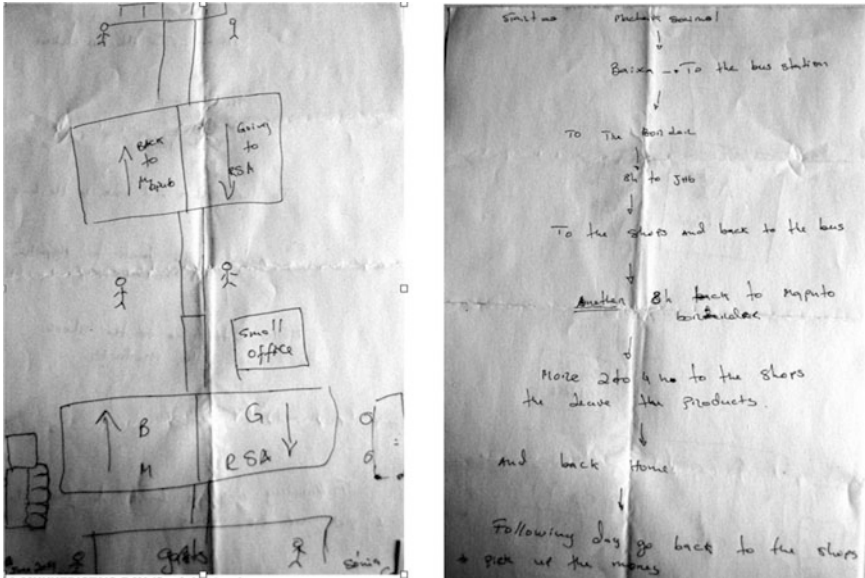 Back
to
Going
to
RSA
small
office
B
M
G
RSA
gates
Sónia
To the bus station
To The
8h to JHB
To the shops and back to the bus
Another 8h back to Maputo
More 2 to 4 h to the shops
the leave the products.
And back Home.
Following day go back to the shops
pick up the money